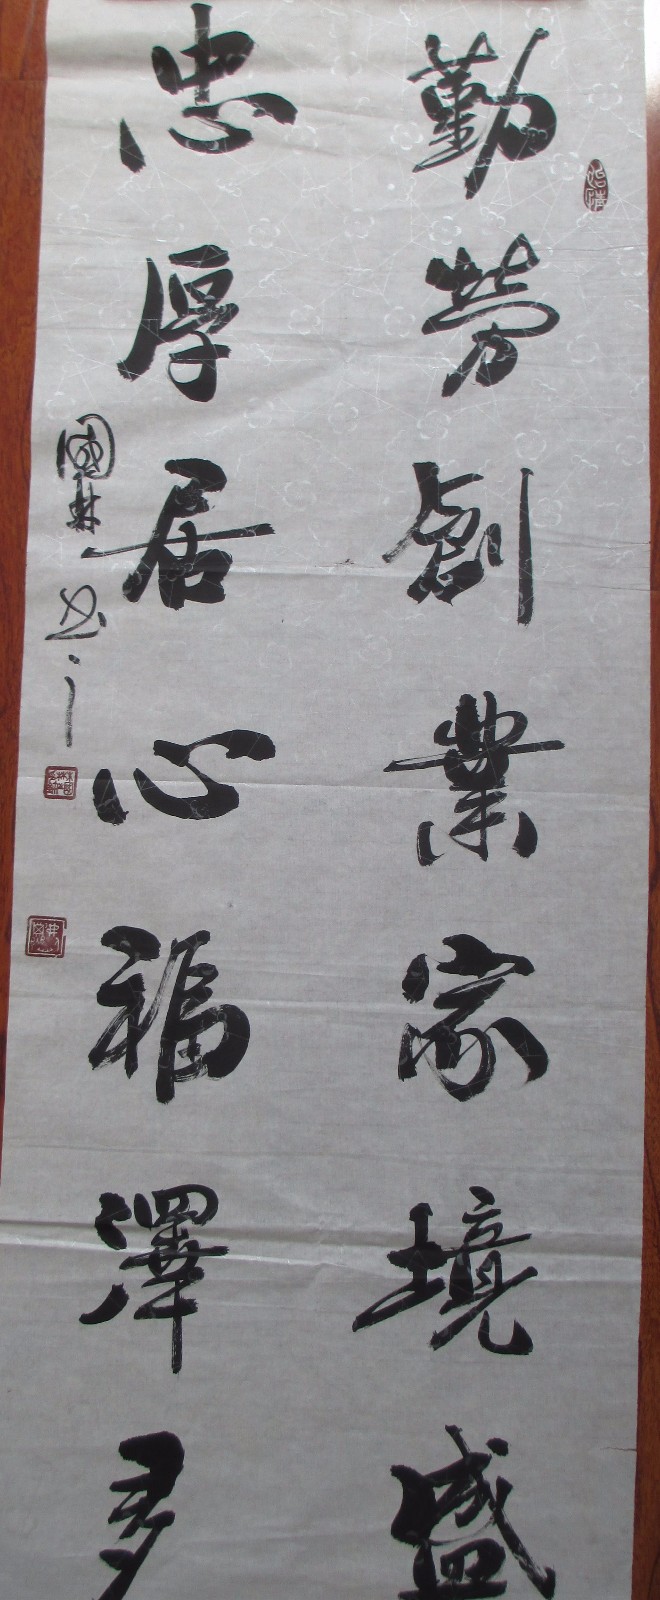 勤劳創業家境盛
忠厚居心福澤多
國林书